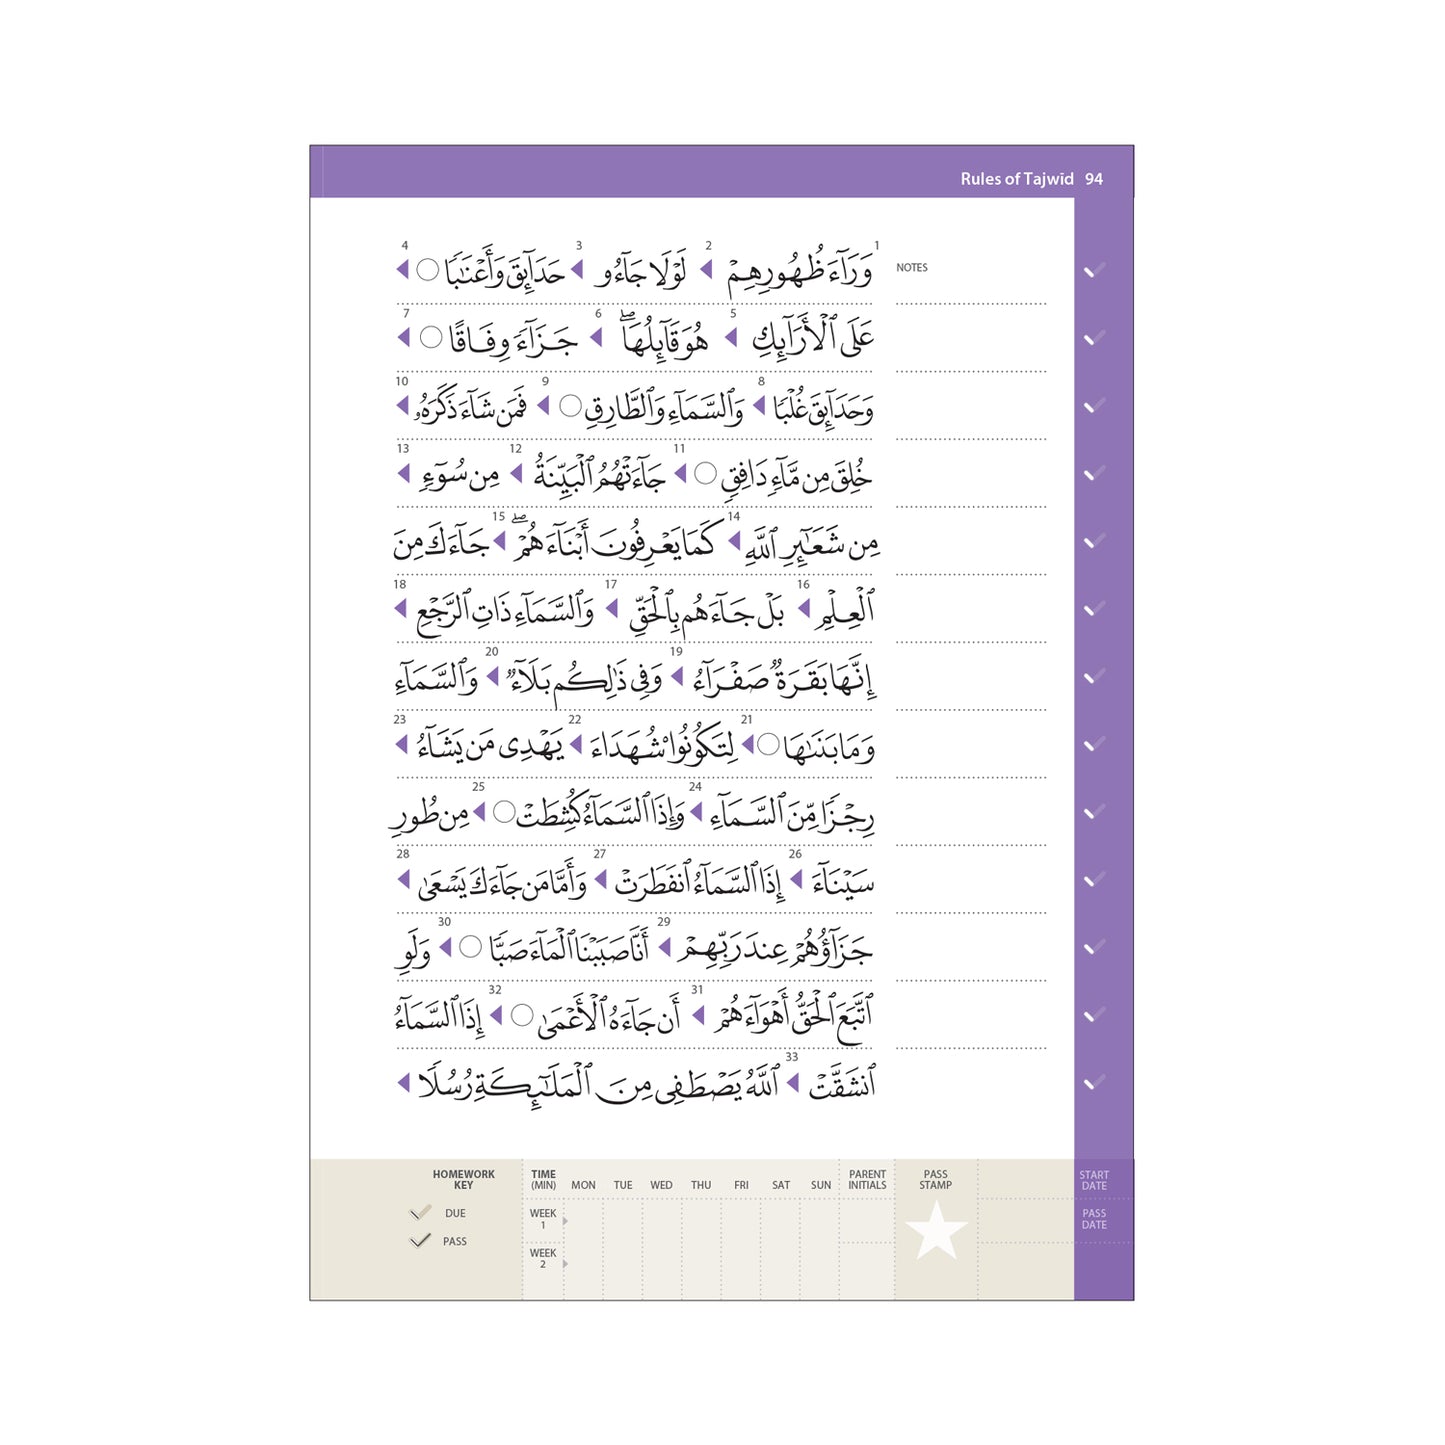 Rules of Tajwīd 94
1 وَرَآءَ ظُهُورِهِمْ ◀ 2 لَوْلَا جَآءُو ◀ 3 حَدَآئِقَ وَأَعْنَٰبًا ○ ◀ 4
NOTES
عَلَى ٱلْأَرَآئِكِ ◀ 5 هُوَ قَآئِلُهَاۖ ◀ 6 جَزَآءً وِفَاقًا ○ ◀ 7
وَحَدَآئِقَ غُلْبًا ◀ 8 وَٱلسَّمَآءِ وَٱلطَّارِقِ ○ ◀ 9 فَمَن شَآءَ ذَكَرَهُۥ ◀ 10
خُلِقَ مِن مَّآءٍ دَافِقٍ ○ ◀ 11 جَآءَتْهُمُ ٱلْبَيِّنَةُ ◀ 12 مِن سُوٓءٍ ◀ 13
مِن شَعَآئِرِ ٱللَّهِ ◀ 14 كَمَا يَعْرِفُونَ أَبْنَآءَهُمْۖ ◀ 15 جَآءَكَ مِنَ
ٱلْعِلْمِ ◀ 16 بَلْ جَآءَهُم بِٱلْحَقِّ ◀ 17 وَٱلسَّمَآءِ ذَاتِ ٱلرَّجْعِ ◀ 18
إِنَّهَا بَقَرَةٌ صَفْرَآءُ ◀ 19 وَفِى ذَٰلِكُم بَلَآءٌ ◀ 20 وَٱلسَّمَآءِ
وَمَا بَنَىٰهَا ○ ◀ 21 لِتَكُونُوا۟ شُهَدَآءَ ◀ 22 يَهْدِى مَن يَشَآءُ ◀ 23
رِجْزًا مِّنَ ٱلسَّمَآءِ ◀ 24 وَإِذَا ٱلسَّمَآءُ كُشِطَتْ ○ ◀ 25 مِن طُورِ
سَيْنَآءَ ◀ 26 إِذَا ٱلسَّمَآءُ ٱنفَطَرَتْ ◀ 27 وَأَمَّا مَن جَآءَكَ يَسْعَىٰ ◀ 28
جَزَآؤُهُمْ عِندَ رَبِّهِمْ ◀ 29 أَنَّا صَبَبْنَا ٱلْمَآءَ صَبًّا ○ ◀ 30 وَلَوِ
ٱتَّبَعَ ٱلْحَقُّ أَهْوَآءَهُمْ ◀ 31 أَن جَآءَهُ ٱلْأَعْمَىٰ ○ ◀ 32 إِذَا ٱلسَّمَآءُ
ٱنشَقَّتْ ◀ 33 ٱللَّهُ يَصْطَفِى مِنَ ٱلْمَلَٰٓئِكَةِ رُسُلًا ◀
HOMEWORK KEY
DUE
PASS
TIME (MIN) MON TUE WED THU FRI SAT SUN PARENT INITIALS PASS STAMP START DATE
WEEK 1
PASS DATE
WEEK 2